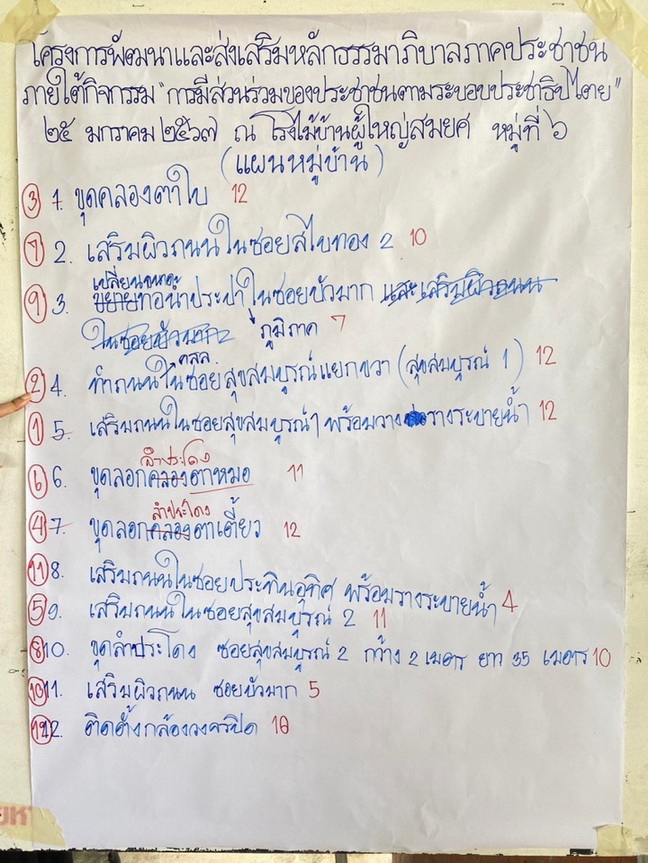 โครงการพัฒนาและส่งเสริมหลักธรรมาภิบาลภาคประชาชน
ภายใต้กิจกรรม "การมีส่วนร่วมของประชาชนตามระบอบประชาธิปไตย"
๒๕ มกราคม ๒๕๖๗ ณ โรงไม้บ้านผู้ใหญ่สมยศ หมู่ที่ ๖
(แผนหมู่บ้าน)
③ 1. ขุดคลองตาใบ 12
⑦ 2. เสริมผิวถนนในซอยสไบทอง 2 10
เปลี่ยนขนาด
⑨ 3. ขยายท่อน้ำประปาในซอยบัวมาก และเสริมผิวถนน
ในซอยบัวมาก ภูมิภาค 7
คสล.
② 4. ทำถนนในซอยสุขสมบูรณ์แยกขวา (สุขสมบูรณ์ 1) 12
① 5. เสริมถนนในซอยสุขสมบูรณ์ 1 พร้อมวางรางระบายน้ำ 12
ลำประโดง
⑥ 6. ขุดลอกคลองตาหมอ 11
ลำประโดง
④ 7. ขุดลอกคลองตาเตี้ยว 12
⑪ 8. เสริมถนนในซอยประทินอุทิศ พร้อมรางระบายน้ำ 4
⑤ 9. เสริมถนนในซอยสุขสมบูรณ์ 2 11
⑧ 10. ขุดลำประโดง ซอยสุขสมบูรณ์ 2 กว้าง 2 เมตร ยาว 35 เมตร 10
⑩ 11. เสริมผิวถนน ซอยบัวมาก 5
⑫ 12. ติดตั้งกล้องวงจรปิด 10